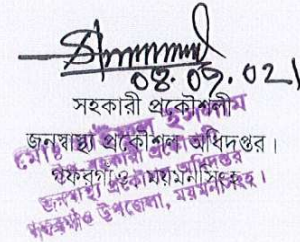 08.09.02১
সহকারী প্রকৌশলী
জনস্বাস্থ্য প্রকৌশল অধিদপ্তর।
গফরগাঁও, ময়মনসিংহ।
মোঃ ইসলাম
সহকারী প্রকৌশলী
জনস্বাস্থ্য প্রকৌশল অধিদপ্তর
গফরগাঁও উপজেলা, ময়মনসিংহ।